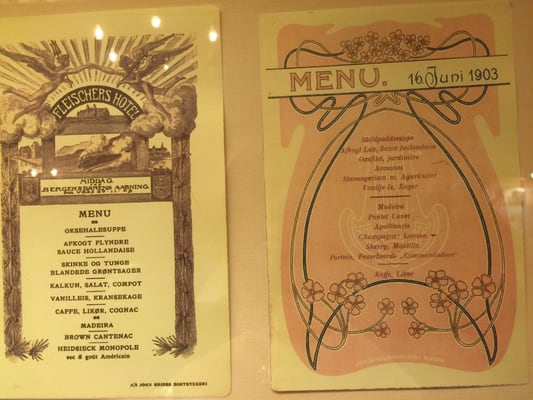 FLEISCHERS HOTEL
MIDDAG
BERGENSBANENS AABNING
MENU
OKSEHALESUPPE
AFKOGT FLYNDRE
SAUCE HOLLANDAISE
SKINKE OG TUNGE
BLANDEDE GRØNTSAGER
KALKUN, SALAT, COMPOT
VANILLEIS, KRANSEKAGE
CAFFE, LIKØR, COGNAC
MADEIRA
BROWN CANTENAC
HEIDSIECK MONOPOLE
sec & goût Américain
A/S JOHN GRIEGS BOKTRYKKERI
MENU. 16 Juni 1903
Skildpaddesuppe
Afkogt Lax, Sauce hollandaise
Oxefilet, jardinière
Ananas
Stensegeriam m. Agurksalat
Vanilje-Is, Kager
Madeira
Pontet Canet
Apollinaris
Champagne: Lanson
Sherry, Montilla
Portvin, Feuerheerds „Commendador“
Kaffe, Likør